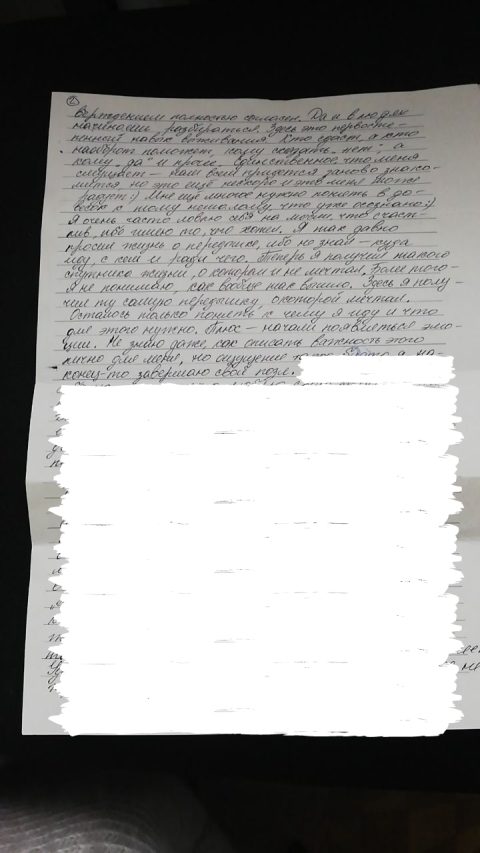 ②
верждением полностью согласен. Да и в людях
начинаешь разбираться. Здесь это первосте-
пенный навык выживания. Кто сдаст, а кто
наоборот поможет, кому сказать "нет", а
кому "да" и прочее. Единственное что меня
смущает – нам придется заново знако-
мится но это ещё нескоро и это меня тоже
радует:) Мне ещё многое нужно понять в до-
весок к тому немногому, что уже осознано:)
Я очень часто ловлю себя на мысли, что счаст-
лив, ибо имею то, что хотел. Я так давно
просил жизнь о передышке, ибо не знал – куда
иду, с кем и ради чего. Теперь я получил такого
спутника жизни, о котором и не мечтал. Более того –
я не понимаю, как вообще так вышло. Здесь я полу-
чил ту самую передышку, о которой мечтал.
Осталось только понять к чему я иду и что
для этого нужно. Плюс – начали появляться эмо-
ции. Не знаю даже, как описать важность этого
лично для меня, но ощущение такое, будто я на-
конец-то завершаю свой пазл.